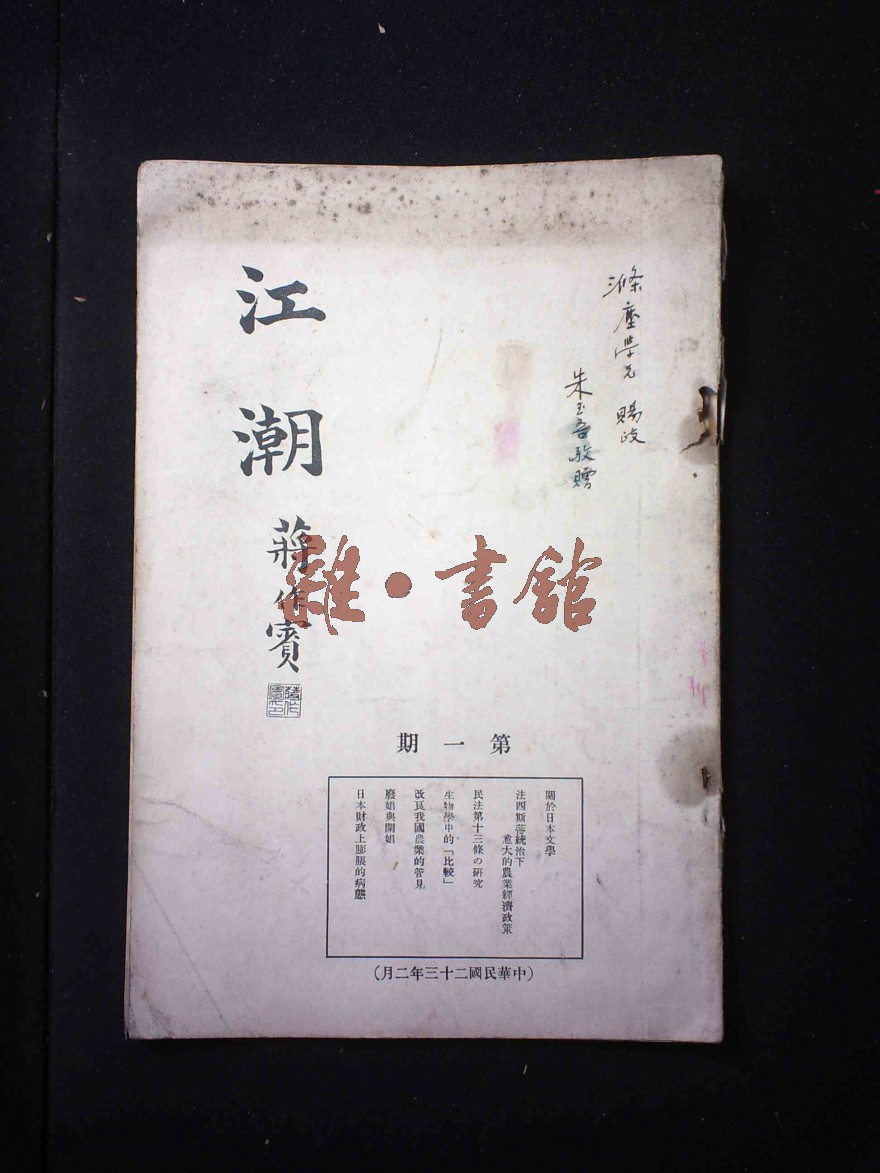 滌塵學兄 賜政
朱玉吾敬贈
江潮
蔣作賓
雜·書館
第一期
關於日本文學
法西斯蒂統治下
意大的農業經濟政策
民法第十三條の研究
生物學中的「比較」
改良我國農業的管見
廢娼與開娼
日本財政上膨脹的病態
(中華民國二十三年二月)